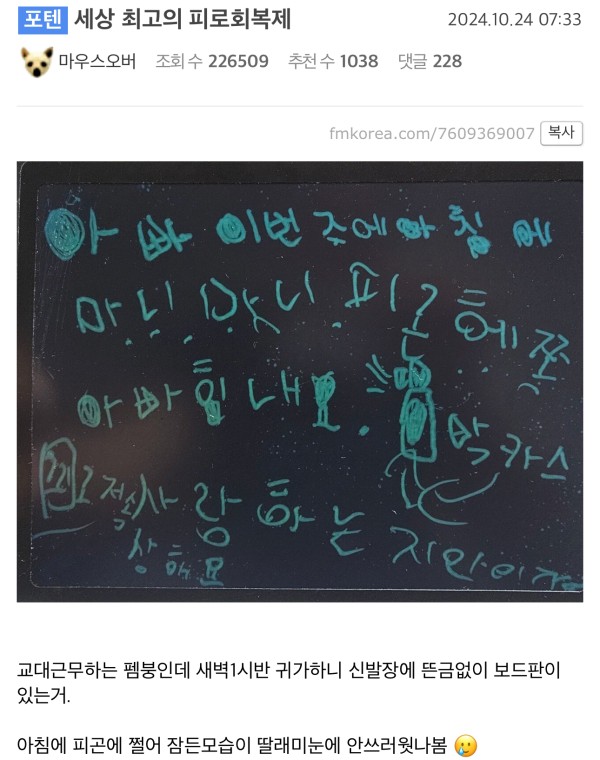 포텐 세상 최고의 피로회복제 2024.10.24 07:33
마우스오버 조회 수 226509 추천 수 1038 댓글 228
fmkorea.com/7609369007 복사
아빠 이번 주에 아침에
마니 마니 피곤해쪼
아빠 힘내요
박카스
사랑하는
지안이
교대근무하는 펨붕인데 새벽1시반 귀가하니 신발장에 뜬금없이 보드판이
있는거.
아침에 피곤에 쩔어 잠든모습이 딸래미눈에 안쓰러웟나봄 🥲